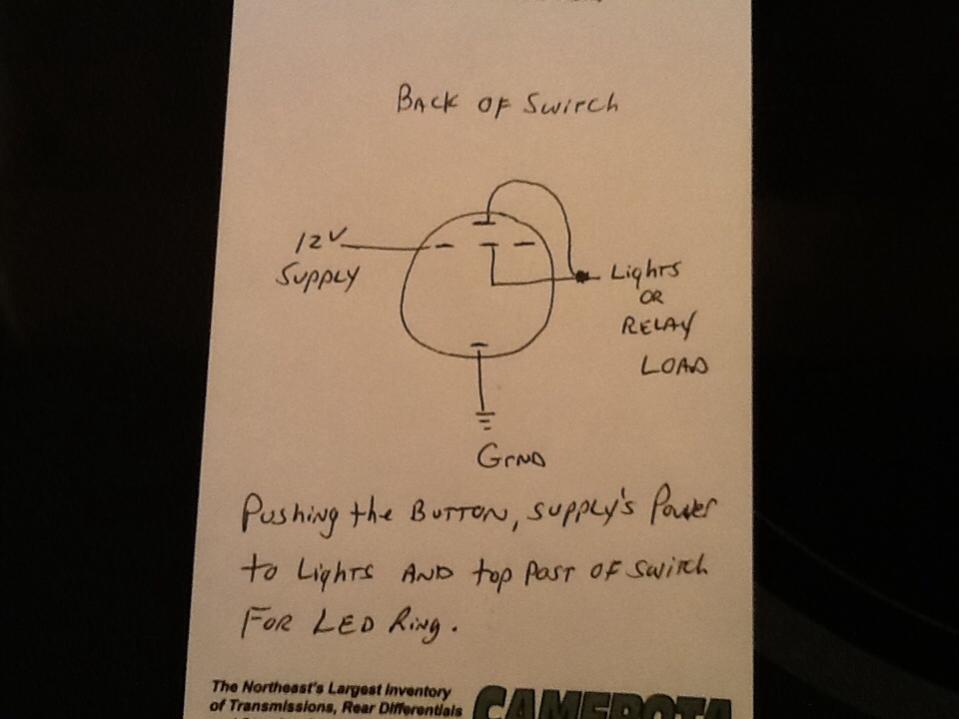 Back of Switch
12V
Supply
Lights
or
Relay
Load
Grnd
Pushing the Button, supply's Power
to Lights and top Post of switch
For LED Ring.
The Northeast's Largest Inventory
of Transmissions, Rear Differentials
CAMEROTA